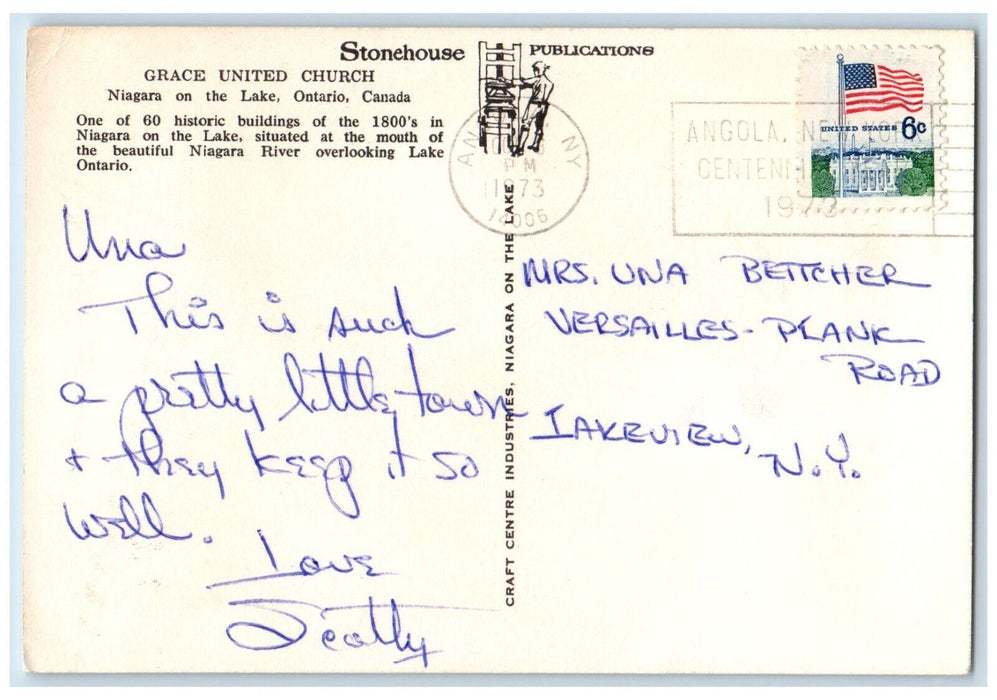 Stonehouse PUBLICATIONS
GRACE UNITED CHURCH
Niagara on the Lake, Ontario, Canada
One of 60 historic buildings of the 1800's in
Niagara on the Lake, situated at the mouth of
the beautiful Niagara River overlooking Lake
Ontario.
NY
PM
1973
14006
ANGOLA, NEW YORK
1973
UNITED STATES 6c
Una
This is such
a pretty little town
+ they keep it so
well.
Love
CRAFT CENTRE INDUSTRIES, NIAGARA ON THE LAKE
MRS. UNA BETTCHER
VERSAILLES-PLANK
ROAD
LAKEVIEW,
N.Y.